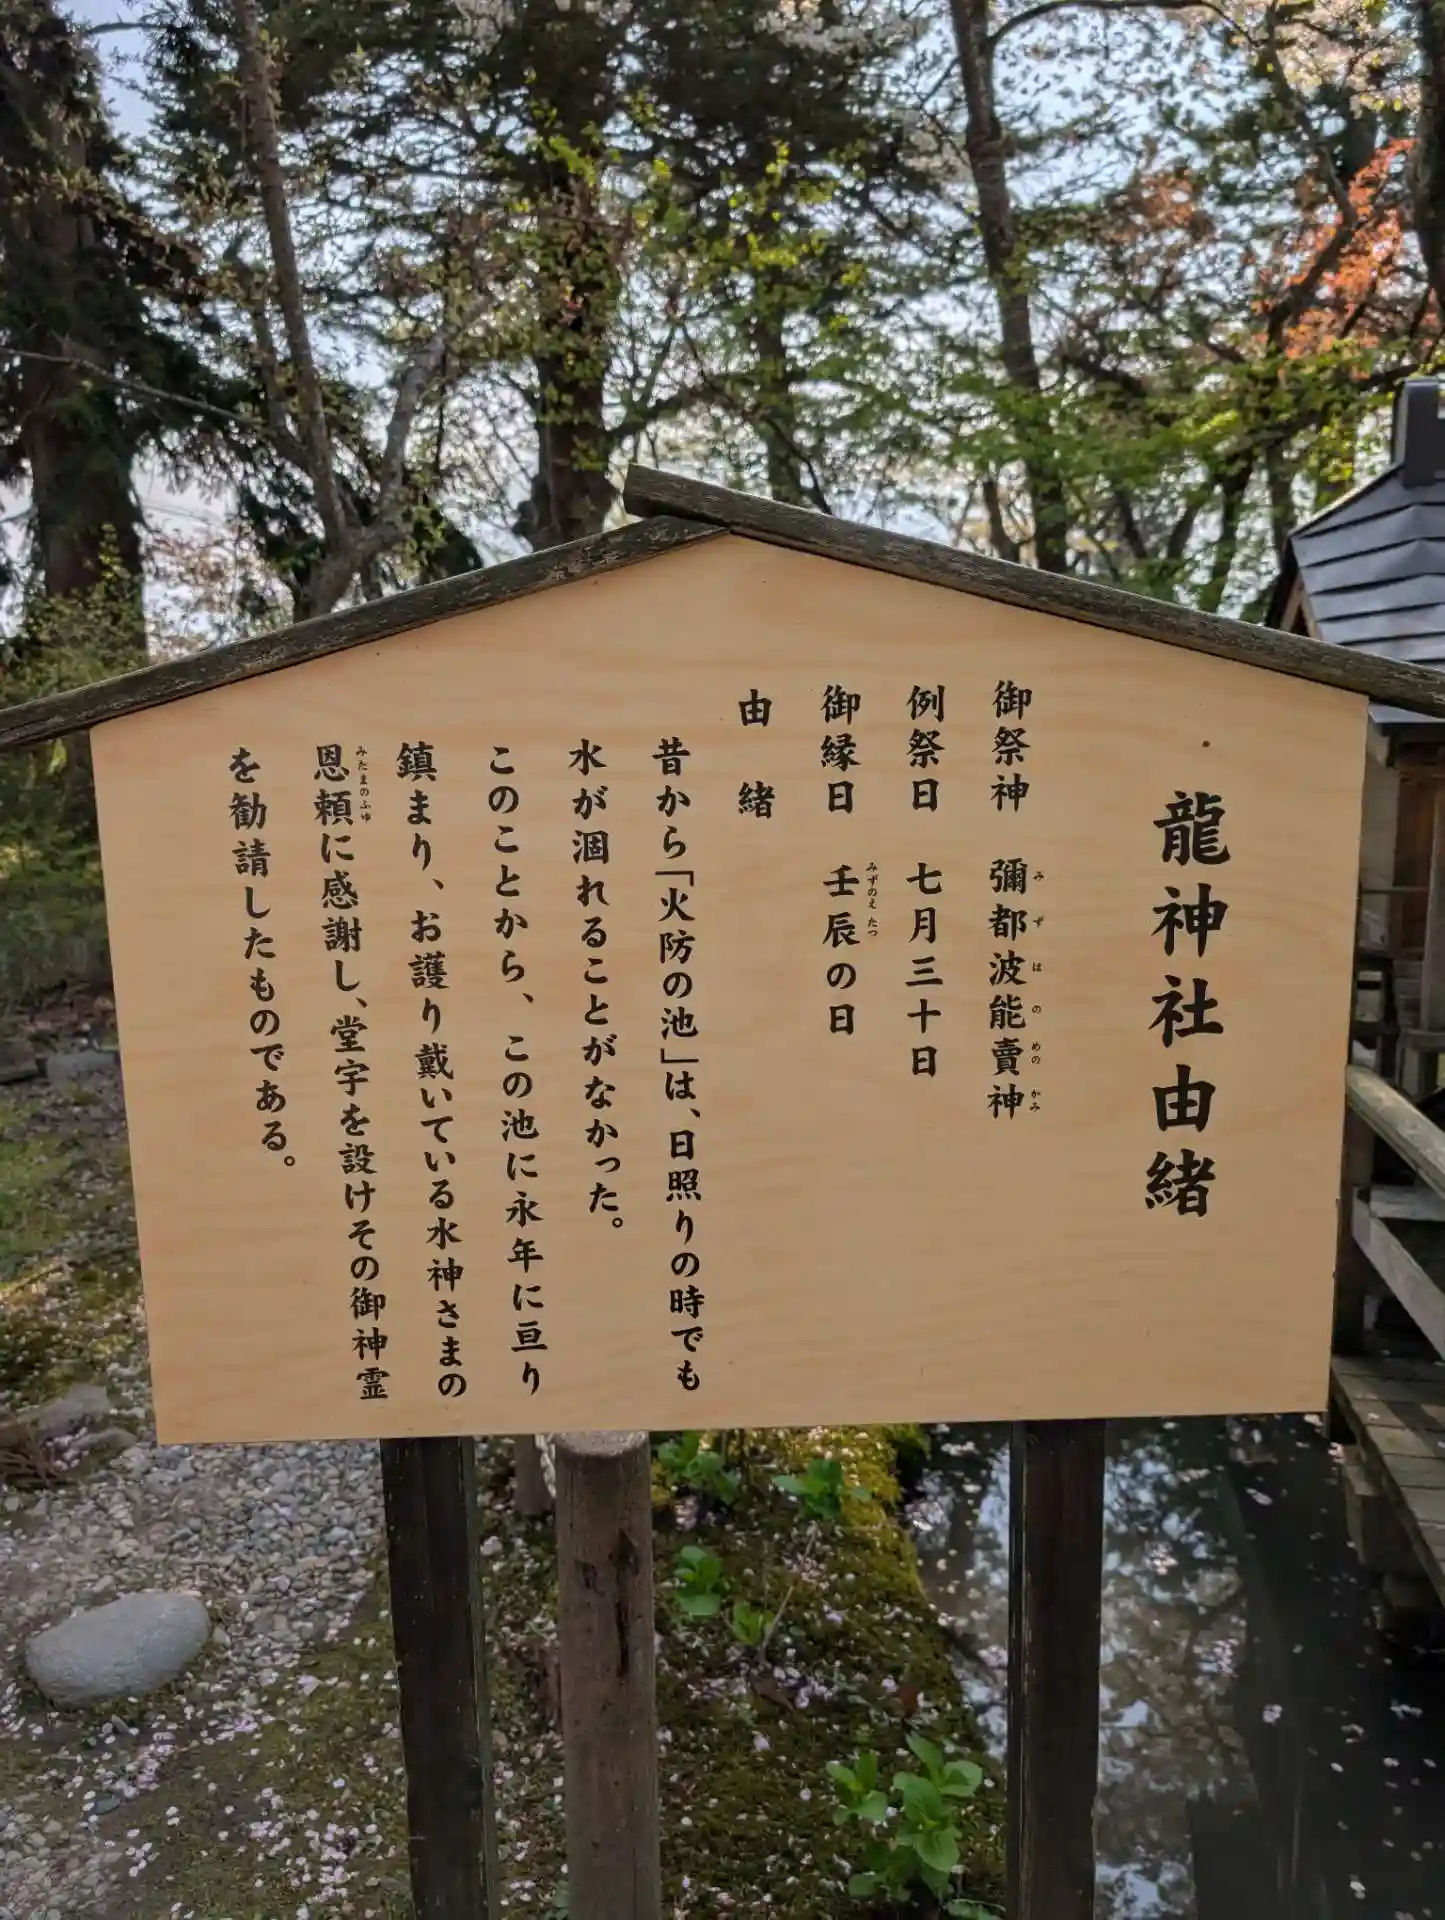 龍神社由緒
御祭神 彌都波能賣神
み ず は の めの かみ
例祭日 七月三十日
御縁日 壬辰の日
みずのえ たつ
由 緒
昔から「火防の池」は、日照りの時でも
水が涸れることがなかった。
このことから、この池に永年に亘り
鎮まり、お護り戴いている水神さまの
恩頼に感謝し、堂宇を設けその御神霊
みたまのふゆ
を勧請したものである。